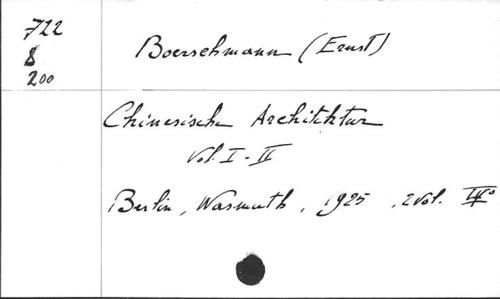 722
8
200
Boerschmann (Ernst)
Chinesische Architektur
Vol. I - II
Berlin, Wasmuth, 1925, 2 Vol. IV°